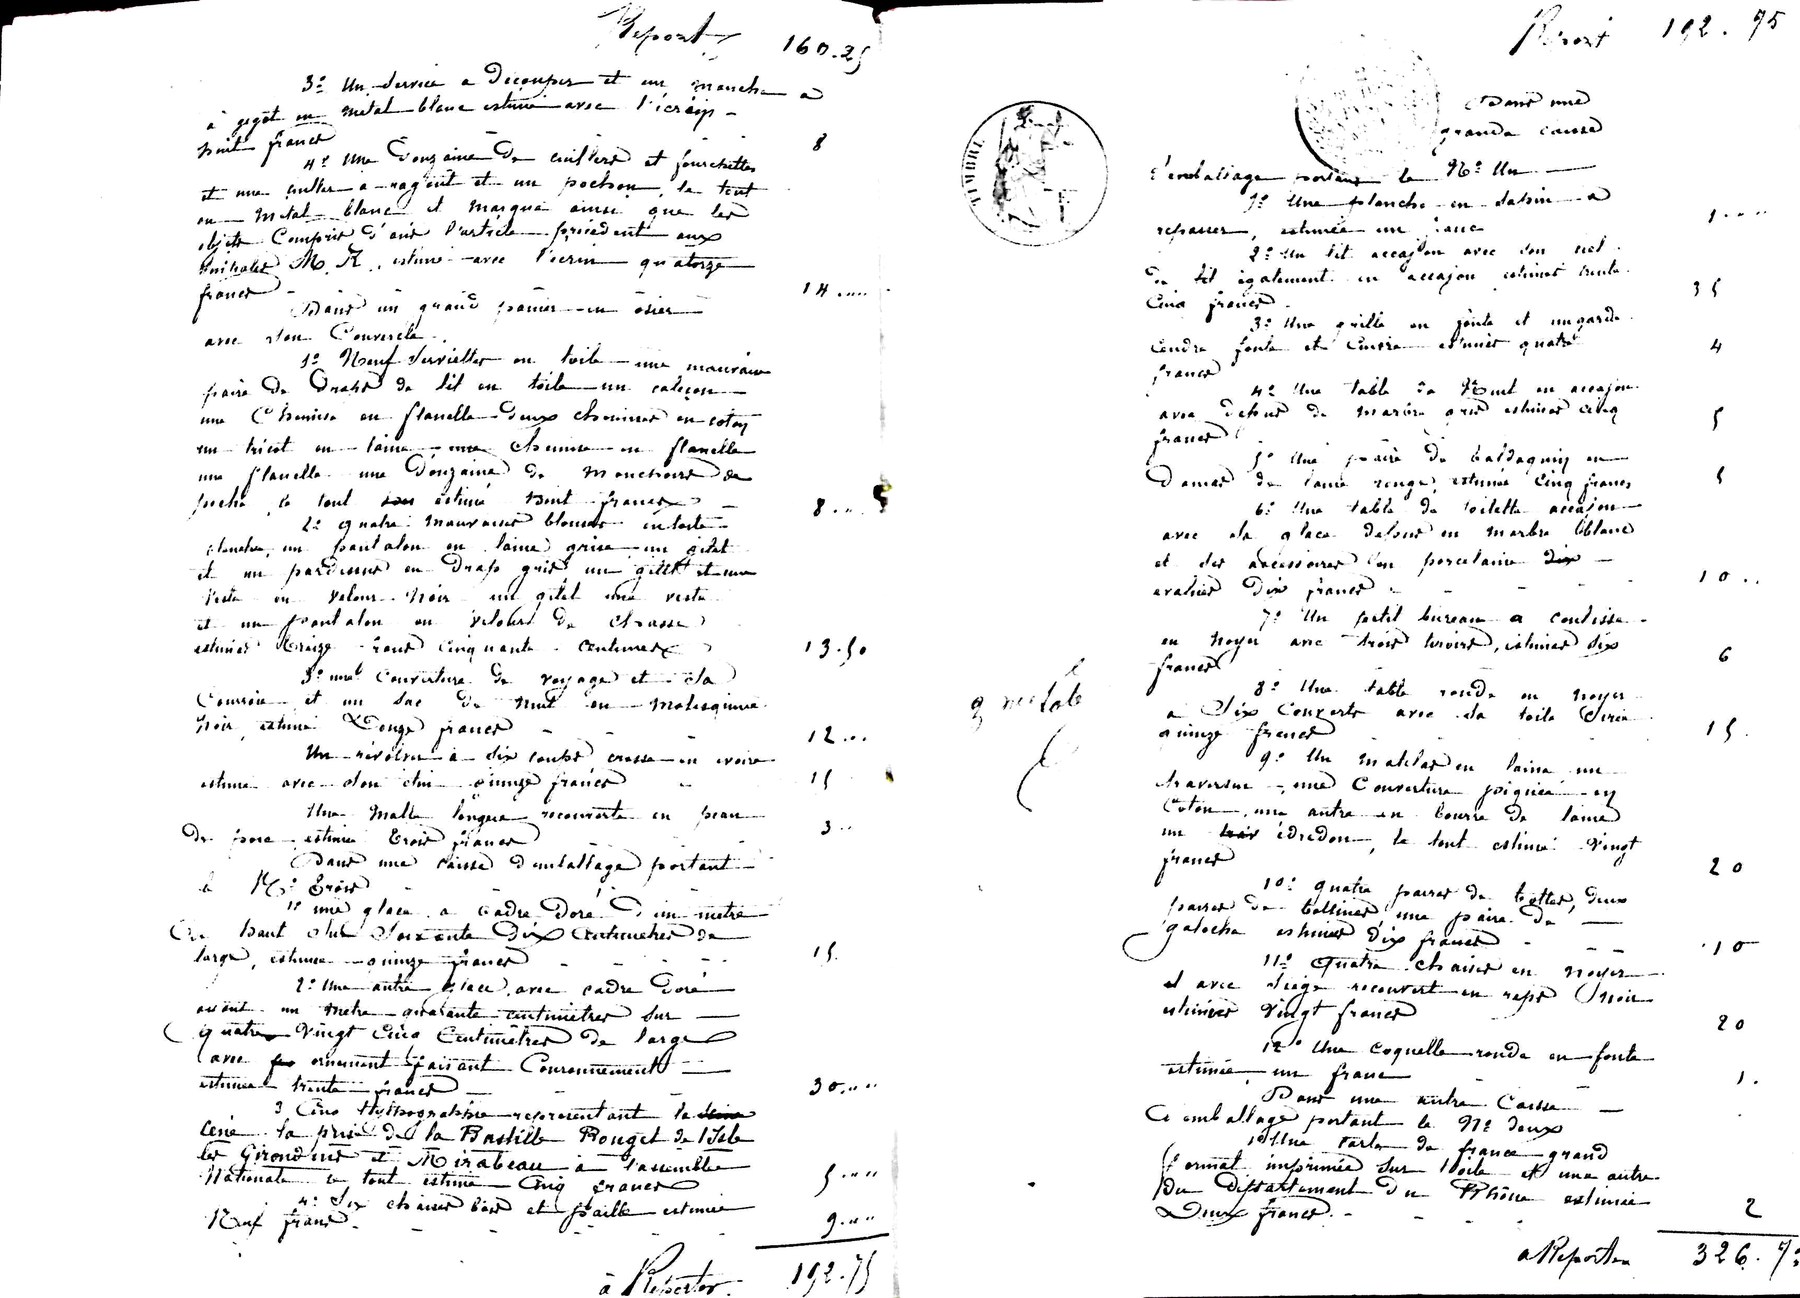 Report 160.25
3º Un service a Decouper et un manche a
à gigot en metal blanc estimé avec l'écrin
huit francs 8
4º Une Douzaine De cuillers et fourchettes
et une cuiller a ragout et un pochon, le tout
en metal blanc et marqué ainsi que les
objets Compris d'ans l'article précédent aux
Initiales M. K. estimé avec l'écrin quatorze
francs 14
Dans un grand panier en osier
avec son Couvercle.
1º Neuf serviettes en toile une mauvaise
paire De Draps de lit en toile un caleçon
une Chemise en flanelle deux chemises en coton
un tricot en laine une chemise en flanelle
une flanelle une Douzaine de mouchoirs de
poche, le tout estimé huit francs 8
2º quatre mauvaises blouses en toile
blanche, un pantalon en laine grise un gilet
et un pardessus en Drap gris un gilet et une
veste en velours noir un gilet une veste
et un pantalon en velours De Chasse
estimés treize francs Cinquante Centimes 13.50
3º une Couverture de voyage et sa
Courroie et un sac de nuit en molesquine
noir, estimé Douze francs 12
Un révolver à six coups crosse en ivoire
estimé avec son étui quinze francs 15
Une malle longue recouverte en peau
De porc, estimée trois francs 3
Dans une caisse d'emballage portant
le Nº trois
1º une glace a cadre Doré D'un metre
De haut sur Soixante Dix Centimetres de
large, estimée quinze francs 15.
2º Une autre glace avec cadre Doré
ayant un metre quarante centimetres sur
quatre Vingt Cinq Centimètres De large
avec ornement faisant Couronnement
estimée trente francs 30
3 Cinq lithographie representant la
Céne la prise de la Bastille Rouget de l'Isle
les Girondins et Mirabeau a l'assemblée
Nationale le tout estimé Cinq francs 5
4º Six chaises bois et paille estimées
Neuf francs. 9
à Reporter 192.75
Report 192.75
TIMBRE
Dans une
grande caisse
d'emballage portant le Nº Un
1º Une planche en sapin a
repasser, estimée un franc 1
2º Un lit accajou avec son ciel
de lit également en accajou estimés trente
Cinq francs. 35
3º Une grille en fonte et un garde
cendre fonte et Cuivre estimés quatre
francs 4
4º Une table De Nuit en accajou
avec dessus de marbre gris estimée cinq
francs 5
5º Une paire de baldaquin en
Damas de laine rouge, estimée Cinq francs 5
6º Une table de toilette accajou
avec sa glace dessus en marbre blanc
et ses accessoires en porcelaine dix
evalués Dix francs 10
7º Un petit bureau a coulisse
en noyer avec trois tiroirs, estimés six
francs 6
8º Une table ronde en noyer
a Six Couverts avec sa toile Cirée
quinze francs 15.
9º Un matelas en laine un
traversin, une Couverture piquée en
Coton, une autre en bourre de laine
un édredon, le tout estimé Vingt
francs 20
10º quatre paires de bottes, deux
paires de bottines une paire De
galoche estimés dix francs 10
11º Quatre chaises en noyer
et avec siége recouvert en reps noir
estimées Vingt francs 20
12º Une coquelle ronde en fonte
estimée un franc 1.
Dans une autre Caisse
d'emballage portant le Nº deux
1º Une carte de france grand
format imprimée sur toile et une autre
Du Département Du Rhône estimée
Deux francs. 2
a Reporter 326.75